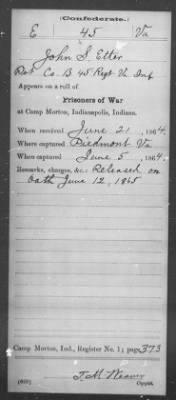 (Confederate.)
E 45 Va
John S. Etter
Pvt Co. B 45 Regt Va Inf
Appears on a roll of
Prisoners of War
at Camp Morton, Indianapolis, Indiana.
When received June 21, 1864.
Where captured Piedmont Va
When captured June 5, 1864.
Remarks, charges, &c.: Released on
Oath June 12, 1865
Camp Morton, Ind., Register No. 1; page 373
T. M. Weaver
Copyist.